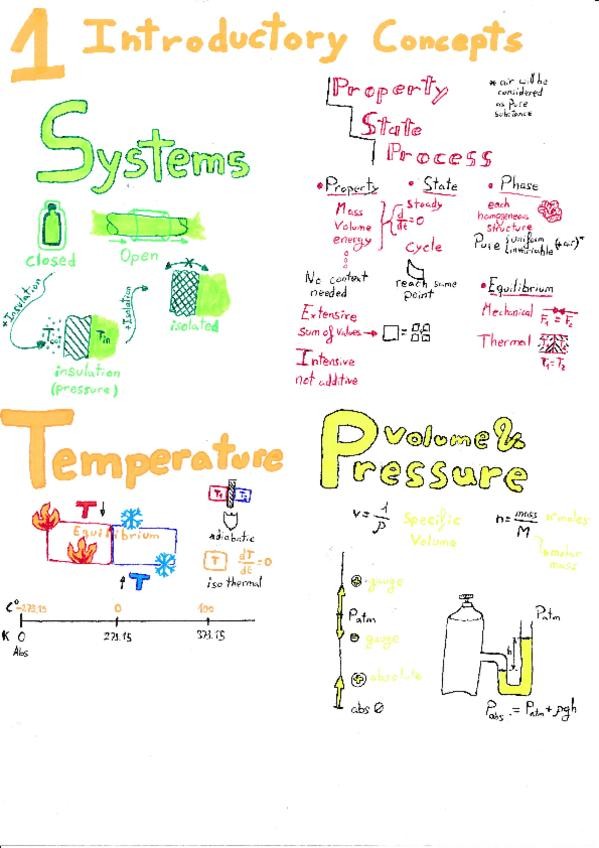 1 Introductory Concepts
Systems
closed
Open
+Insulation
+Isolation
Tout
Tin
insulation
(pressure)
isolated
Property
State
Process
* air will be
considered
as pure
substance
• Property
Mass
Volume
energy
No context
needed
Extensive
sum of values → □ =
Intensive
not additive
• State
Steady
d/dt = 0
cycle
reach same
point
• Phase
each
homogeneous
structure
Pure {uniform
invariable (+air)*
• Equilibrium
Mechanical
F₁ = F₂
Thermal
T₁ = T₂
Temperature
T ↓
Equilibrium
↑ T
T₁
T₂
adiabatic
T dT/dt = 0
isothermal
C° -273.15 0 100
K 0 273.15 373.15
Abs
Volume &
Pressure
v = 1/ρ Specific
Volume
n = mass/M nº moles
molar
mass
⊕ gauge
Patm
⊖ gauge
⊕ absolute
abs 0
Patm
h
Pabs. = Patm + ρgh